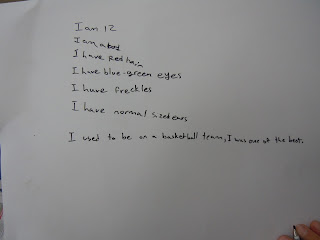 I am 12
I am a
I have Red hair
I have blue-green eyes
I have freckles
I have normal sized ears
I used to be on a basketball team, I was one of the best.